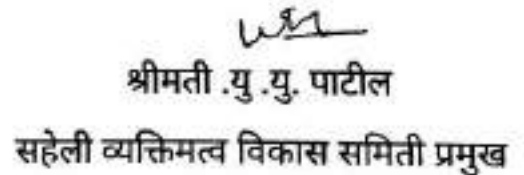 श्रीमती .यु .यु. पाटील
सहेली व्यक्तिमत्व विकास समिती प्रमुख